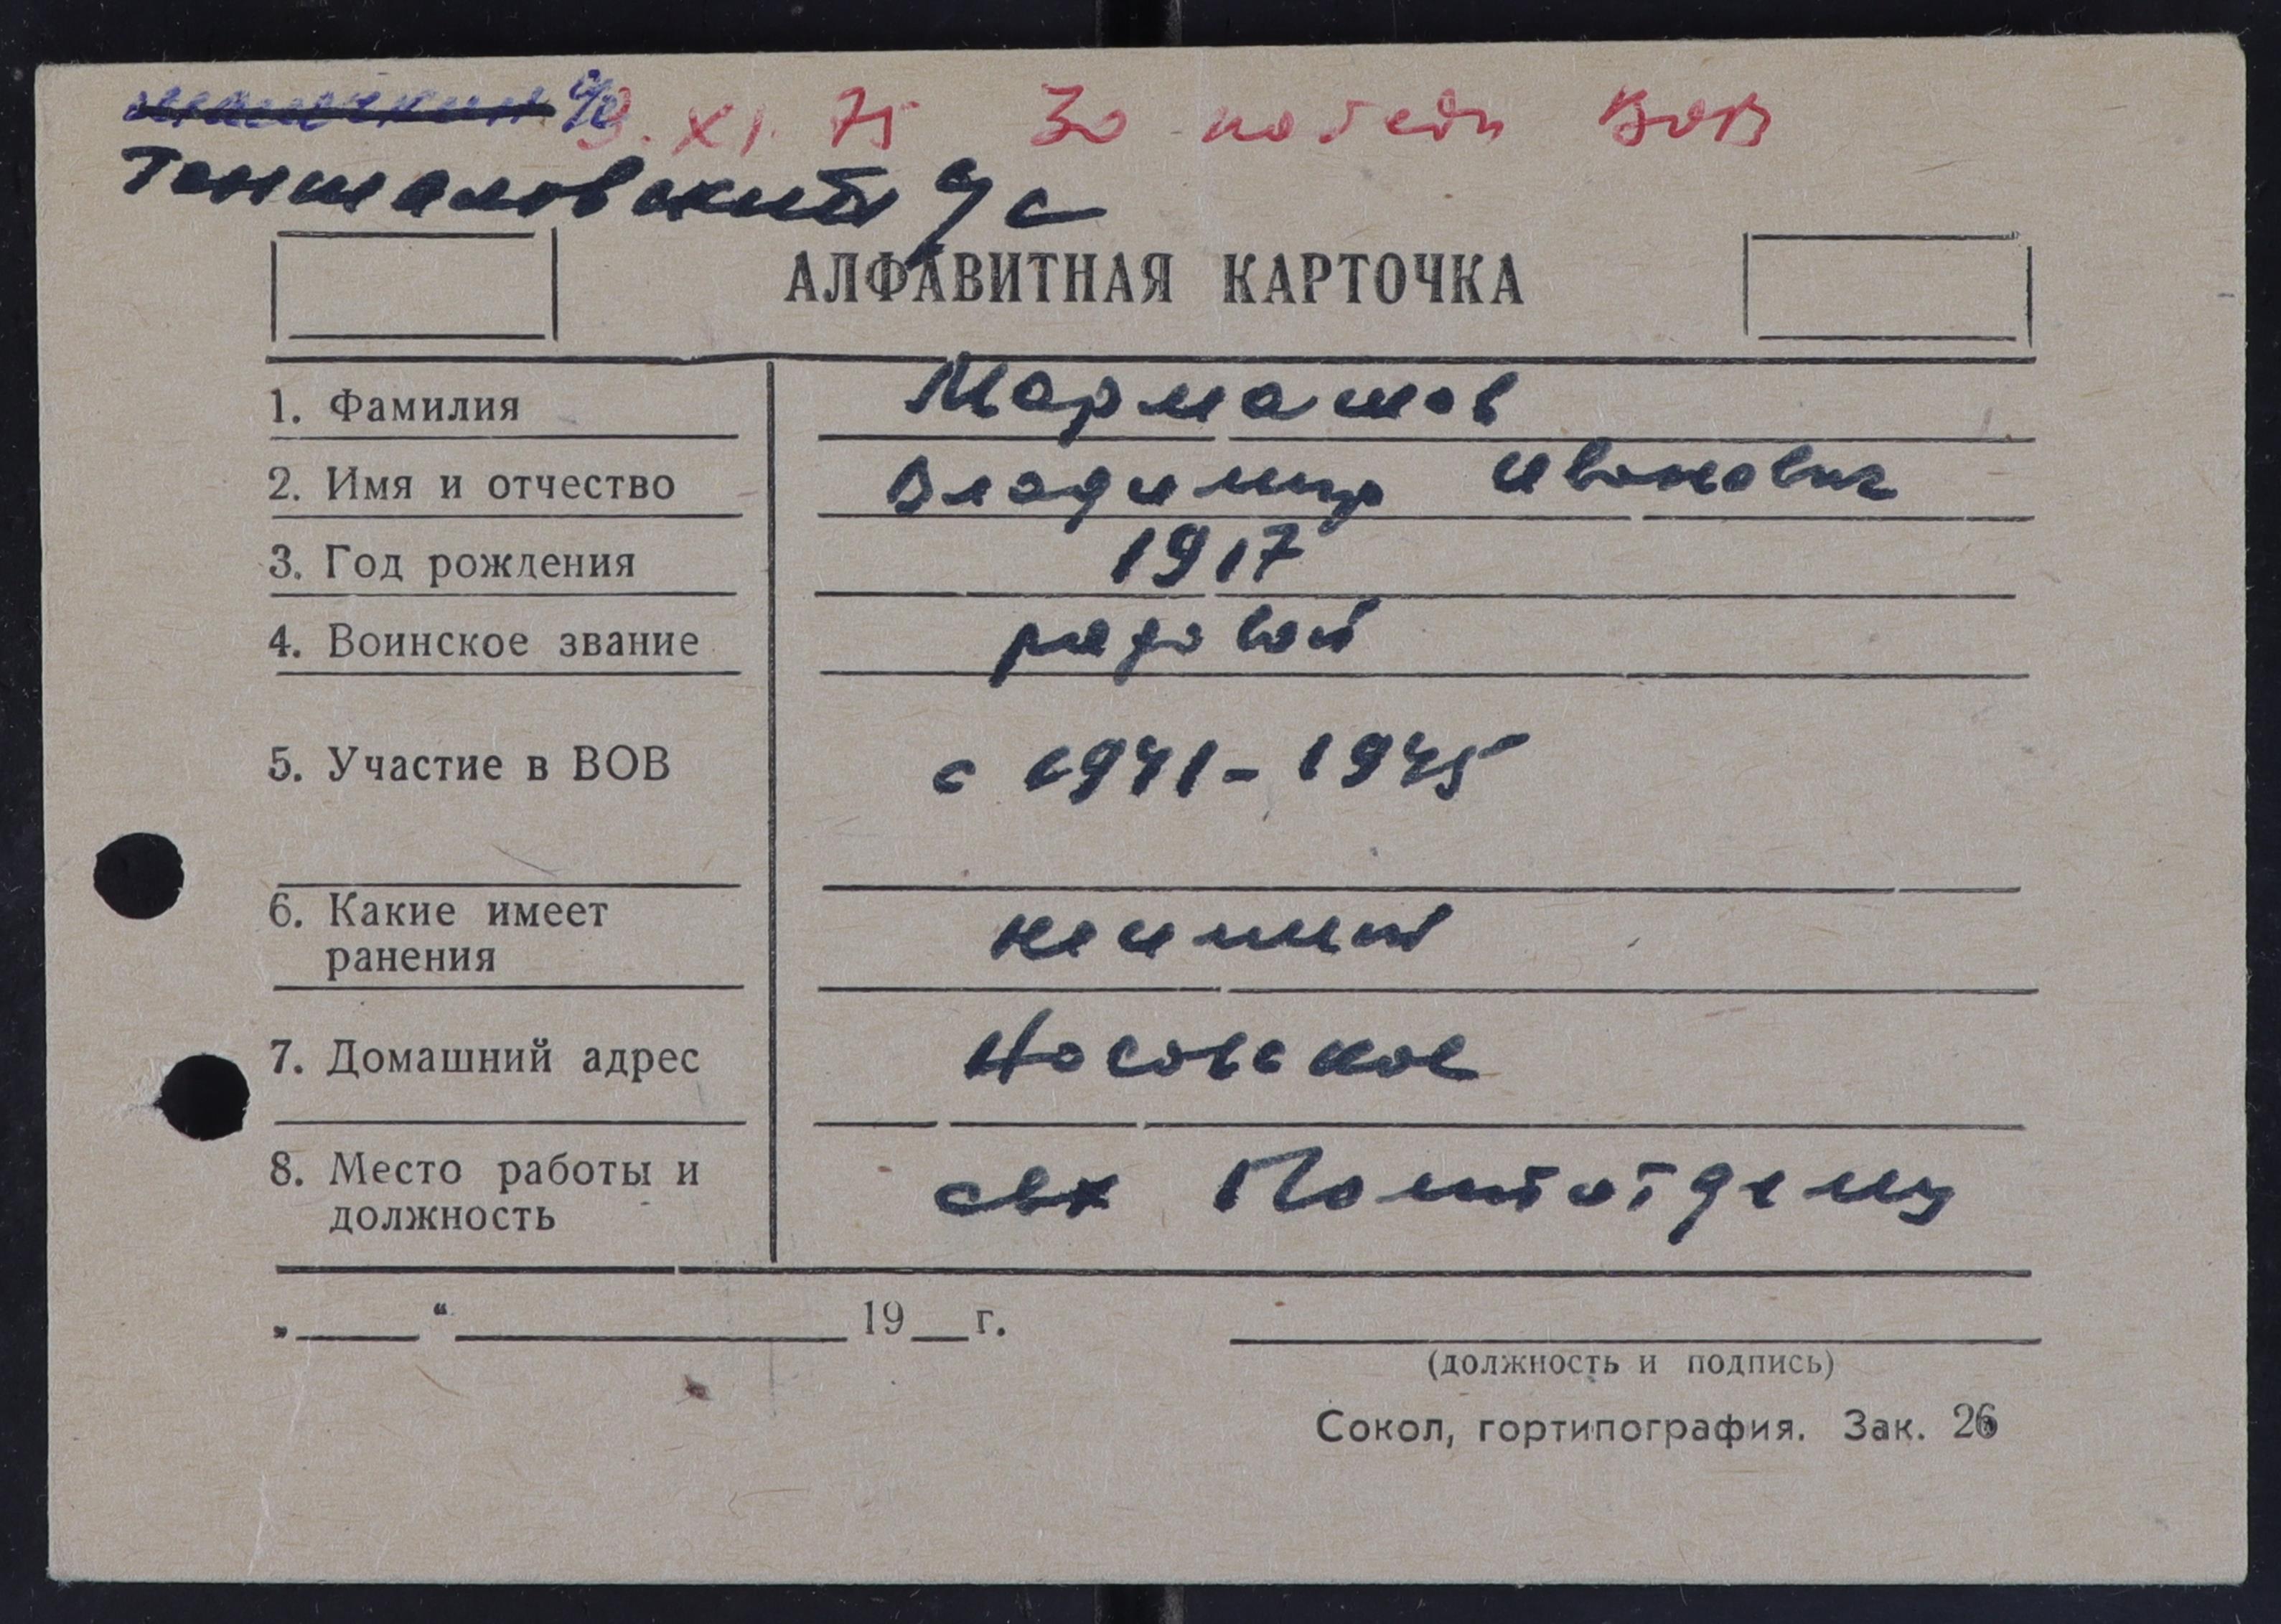 9. XI. 75 30 победы ВОВ
Тоншаловский с/с
АЛФАВИТНАЯ КАРТОЧКА
1. Фамилия Мармашов
2. Имя и отчество Владимир Иванович
3. Год рождения 1917
4. Воинское звание рядовой
5. Участие в ВОВ с 1941-1945
6. Какие имеет
ранения
7. Домашний адрес Носовское
8. Место работы и свх Политотделец
должность
„ “ 19 г.
(должность и подпись)
Сокол, гортипография. Зак. 26